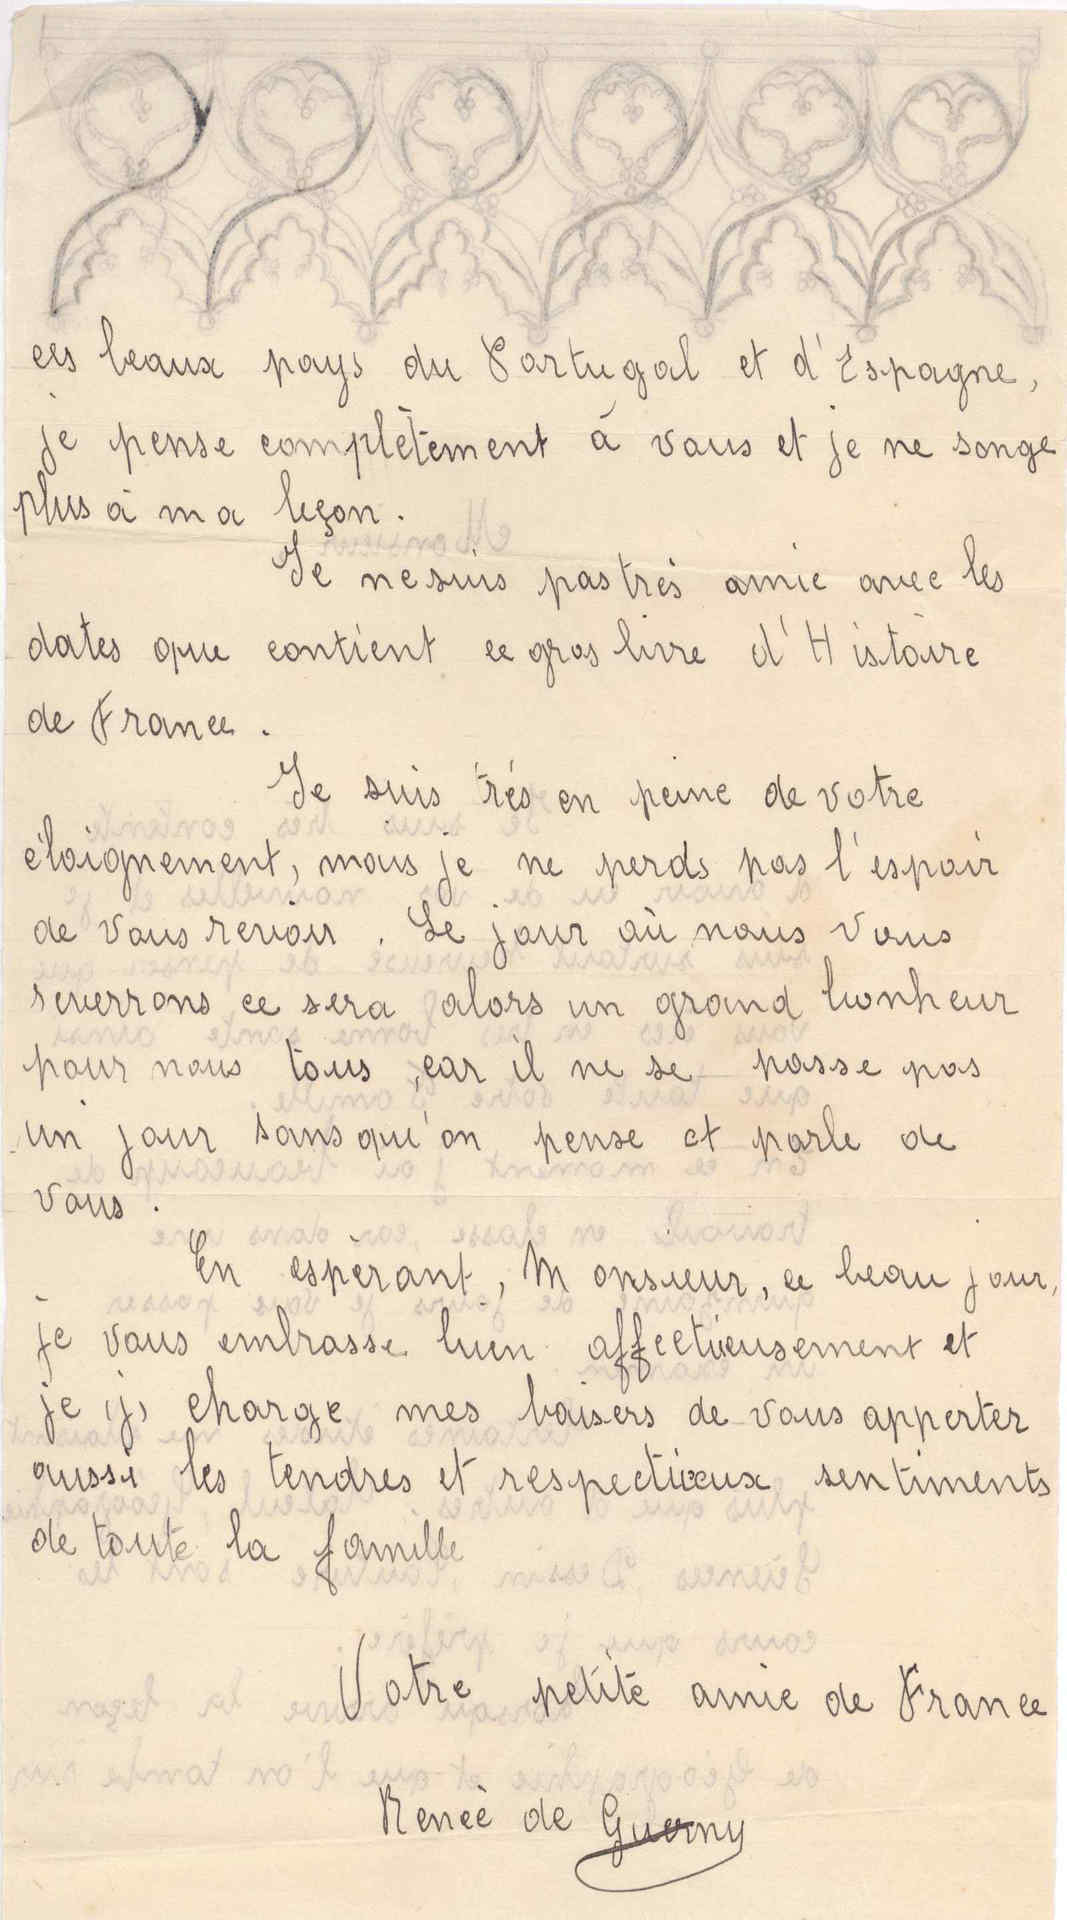 ces beaux pays du Portugal et d'Espagne,
je pense complètement à vous et je ne songe
plus à ma leçon.
Je ne suis pas très amie avec les
dates que contient ce gros livre d'Histoire
de France.
Je suis très en peine de votre
éloignement, mais je ne perds pas l'espoir
de vous revoir. Le jour où nous vous
reverrons ce sera alors un grand bonheur
pour nous tous, car il ne se passe pas
un jour sans qu'on pense et parle de
vous.
En espèrant, Monsieur, ce beau jour,
je vous embrasse bien affectieusement et
je charge mes baisers de vous apporter
aussi les tendres et respectieux sentiments
de toute la famille
Votre petite amie de France
Renée de